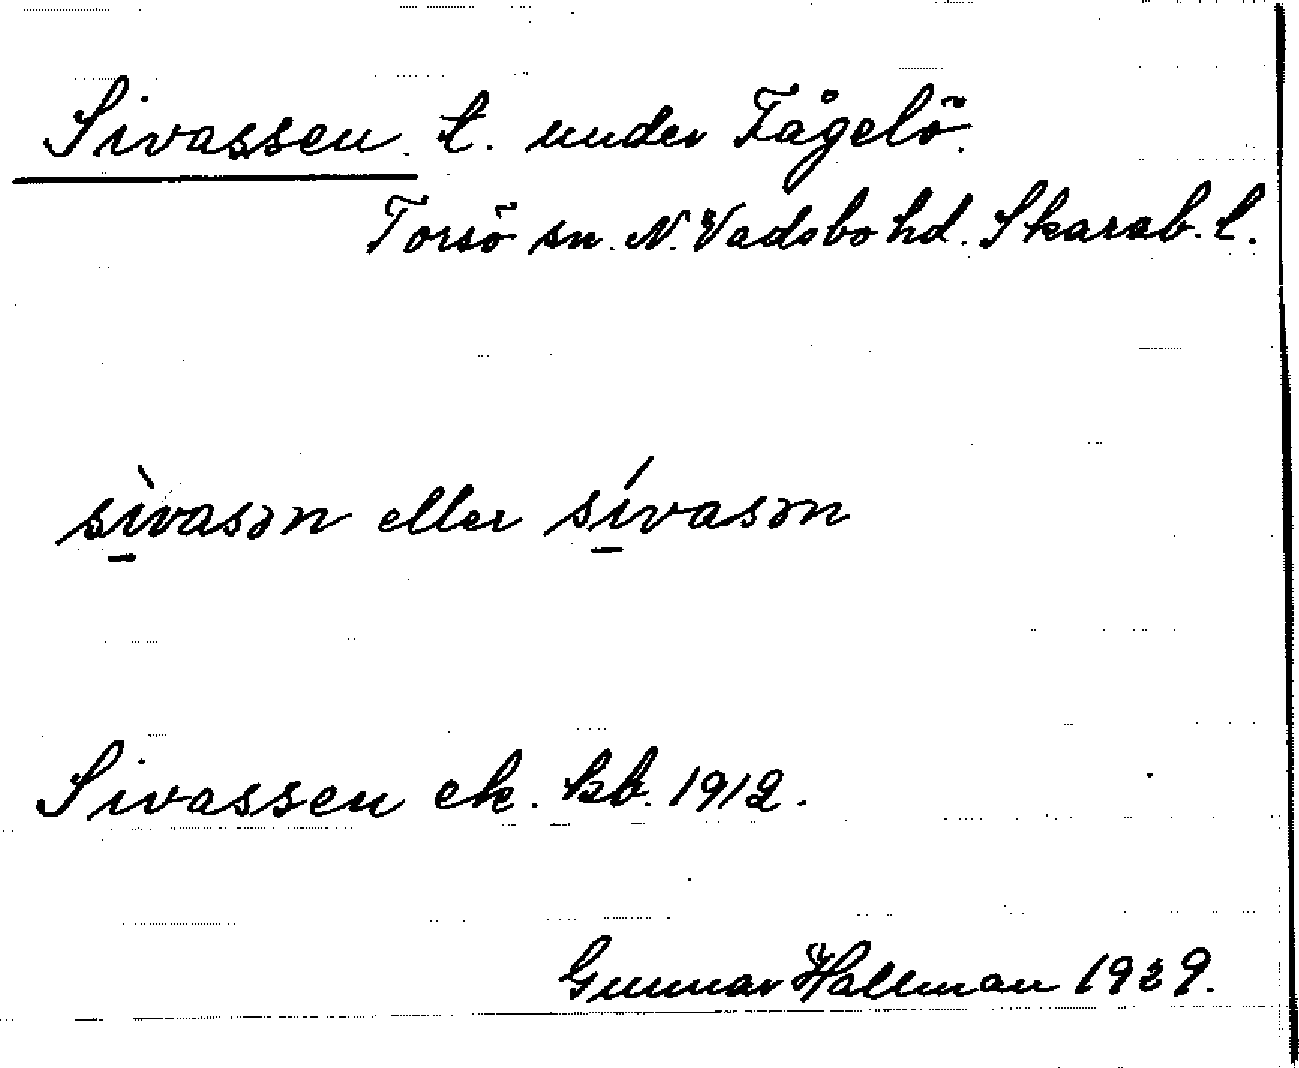 Sivassen t. under Fågelö.
Torsö sn. N. Vadsbo hd. Skarab. l.
sìvasən eller sívasən
Sivassen ek. kb. 1912.
Gunnar Hallman 1929.